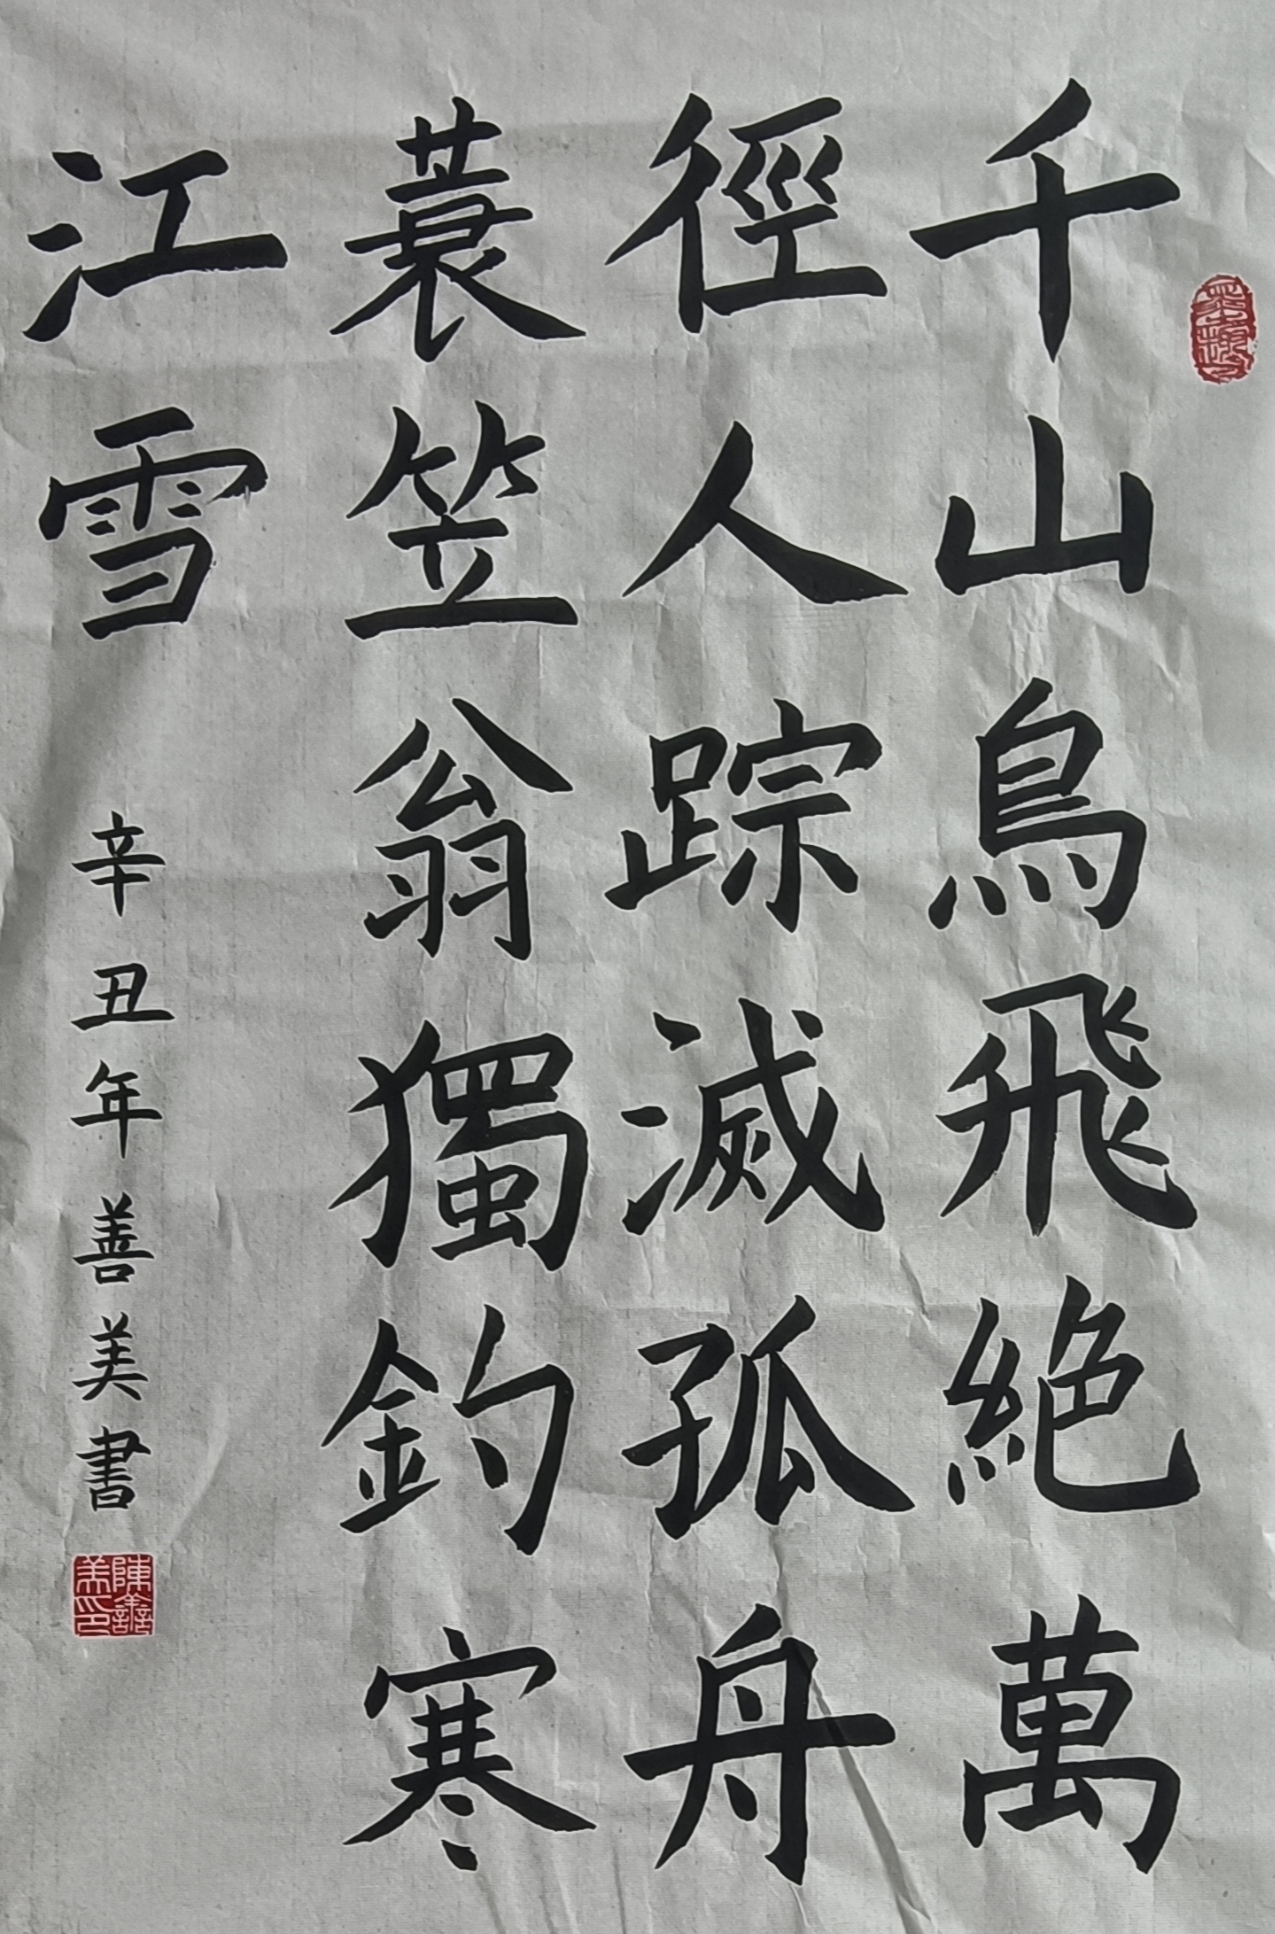 千山鳥飛絶萬
徑人踪滅孤舟
蓑笠翁獨釣寒
江雪
辛丑年善美書
陳善美印